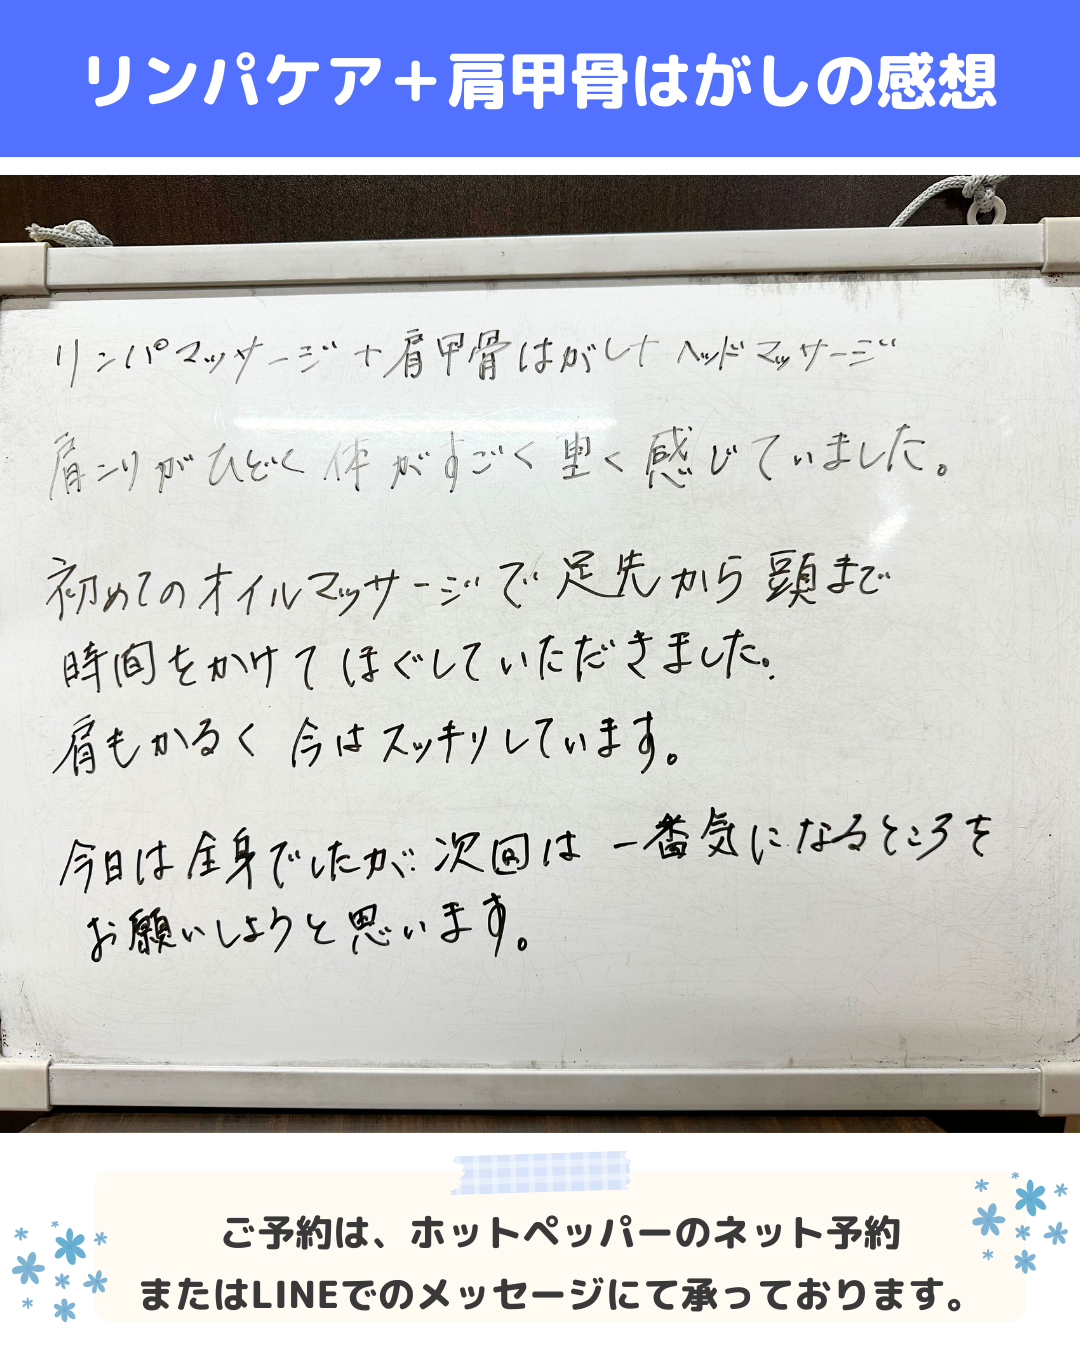 リンパケア＋肩甲骨はがしの感想
リンパマッサージ＋肩甲骨はがし＋ヘッドマッサージ
肩コリがひどく体がすごく重く感じていました。
初めてのオイルマッサージで足先から頭まで
時間をかけてほぐしていただきました。
肩もかるく今はスッキリしています。
今日は全身でしたが、次回は一番気になるところを
お願いしようと思います。
ご予約は、ホットペッパーのネット予約
またはLINEでのメッセージにて承っております。